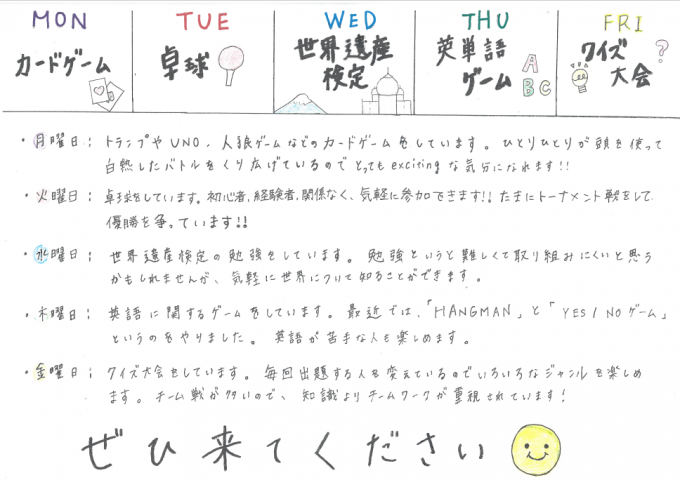 MON
TUE
WED
THU
FRI
カードゲーム
卓球
世界遺産
検定
英単語
ゲーム
A
B C
クイズ
大会
?
・月曜日： トランプやUNO、人狼ゲームなどのカードゲームをしています。ひとりひとりが頭を使って
白熱したバトルをくり広げているのでとってもexcitingな気分になれます!!
・火曜日： 卓球をしています。初心者,経験者,関係なく、気軽に参加できます!! たまにトーナメント戦をして
優勝を争っています!!
・水曜日： 世界遺産検定の勉強をしています。勉強というと難しくて取り組みにくいと思う
かもしれませんが、気軽に世界について知ることができます。
・木曜日： 英語に関するゲームをしています。最近では、「HANGMAN」と「YES/NOゲーム」
というのをやりました。英語が苦手な人も楽しめます。
・金曜日： クイズ大会をしています。毎回出題する人を変えているのでいろいろなジャンルを楽しめ
ます。チーム戦が多いので、知識よりチームワークが重視されています!
ぜひ来てください